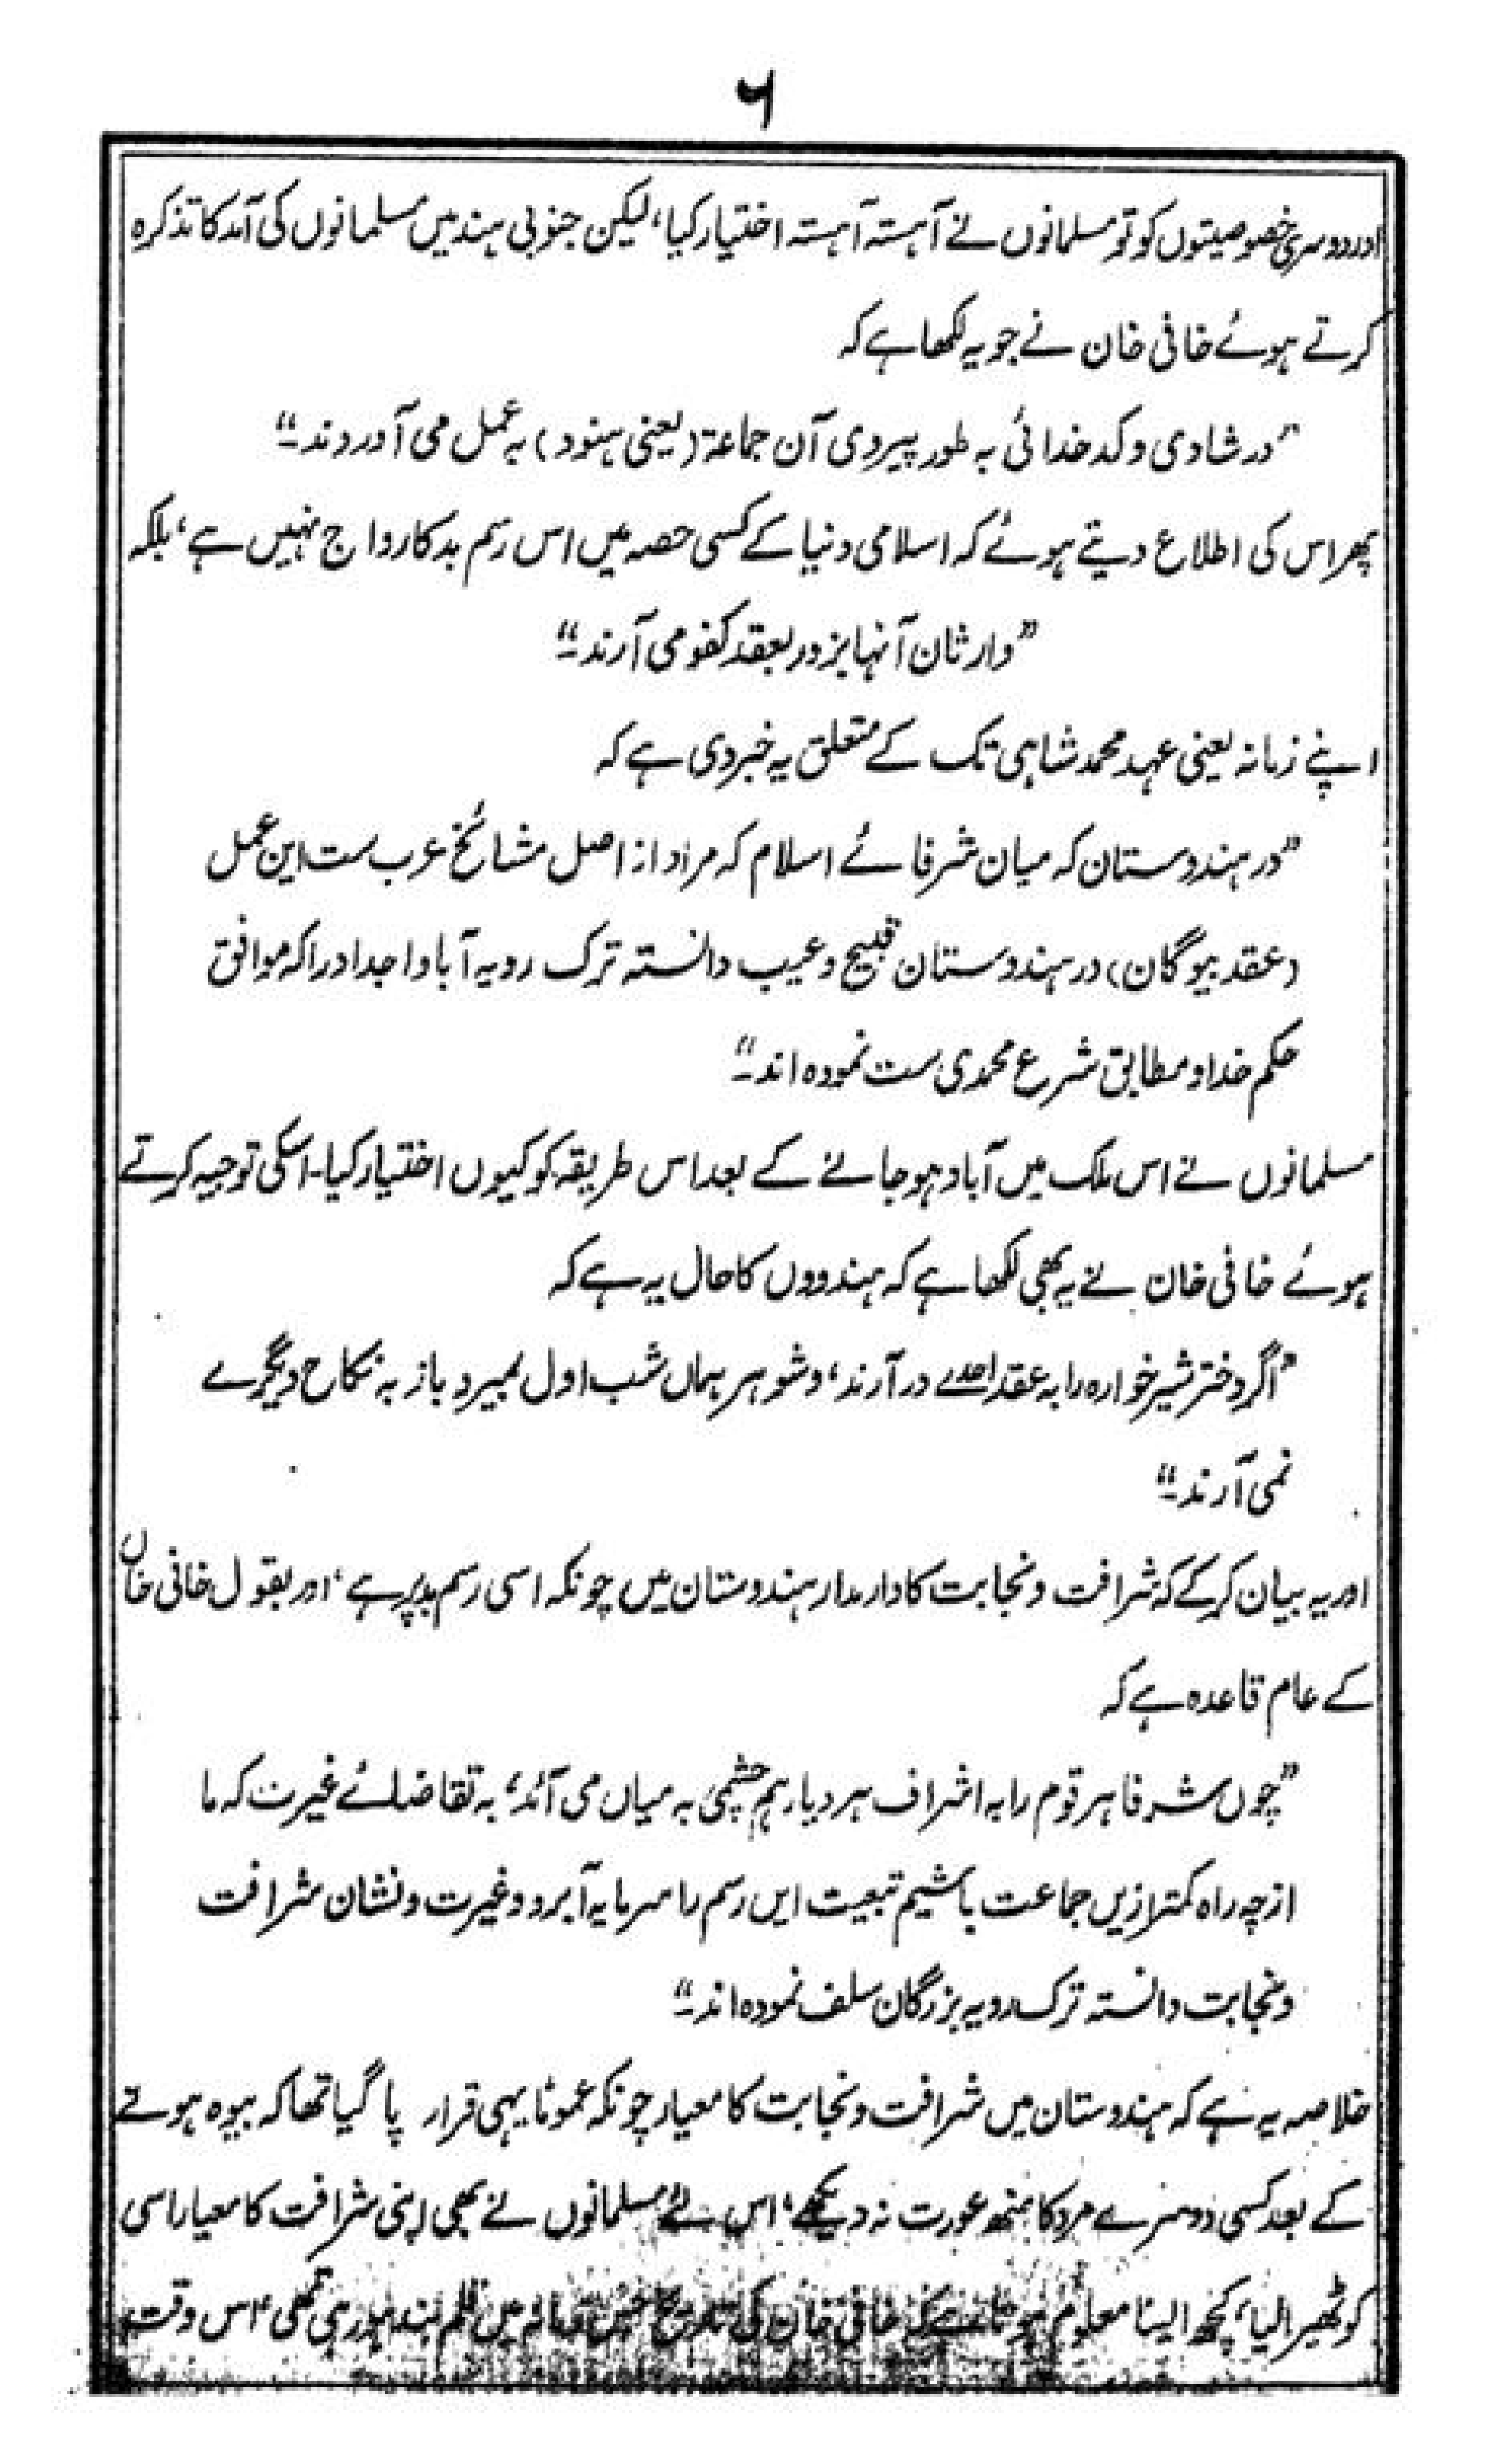 ۶
اور دوسری خصوصیتوں کو تو مسلمانوں نے آہستہ آہستہ اختیار کیا، لیکن جنوبی ہند میں مسلمانوں کی آمد کا تذکرہ
کرتے ہوئے خافی خان نے جو یہ لکھا ہے کہ
”در شادی و کدخدائی بہ طور پیروی آن جماعۃ (یعنی ہنود) بہ عمل می آوردند۔“
پھر اس کی اطلاع دیتے ہوئے کہ اسلامی دنیا کے کسی حصہ میں اس رسم بد کا رواج نہیں ہے، بلکہ
”وارثان آنہا بزور بعقد کفو می آرند۔“
اپنے زمانہ یعنی عہد محمد شاہی تک کے متعلق یہ خبر دی ہے کہ
”در ہندوستان کہ میان شرفائے اسلام کہ مراد از اصل مشائخ عرب ست این عمل
(عقد بیوگان) در ہندوستان قبیح و عیب دانستہ ترک رویہ آبا و اجداد را کہ موافق
حکم خدا و مطابق شرع محمدی ست نمودہ اند۔“
مسلمانوں نے اس ملک میں آباد ہو جانے کے بعد اس طریقہ کو کیوں اختیار کیا۔ اسکی توجیہ کرتے
ہوئے خافی خان نے یہ بھی لکھا ہے کہ ہندووں کا حال یہ ہے کہ
”اگر دختر شیر خوارہ را بہ عقد احدے در آرند، و شوہر ہماں شب اول بمیرد باز بہ نکاح دیگرے
نمی آرند۔“
اور یہ بیان کرکے کہ شرافت و نجابت کا دارمدار ہندوستان میں چونکہ اسی رسم بد پر ہے، اور بقول خافی خاں
کے عام قاعدہ ہے کہ
”چوں شرفا ہر قوم را بہ اشراف ہر دیار ہم چشمی بہ میاں می آئد، بہ تقاضائے غیرت کہ ما
از چہ راہ کمتر ازیں جماعت باشیم تبعیت ایں رسم را سرمایہ آبرو و غیرت و نشان شرافت
و نجابت دانستہ ترک رویہ بزرگان سلف نمودہ اند۔“
خلاصہ یہ ہے کہ ہندوستان میں شرافت و نجابت کا معیار چونکہ عموماً یہی قرار پا گیا تھا کہ بیوہ ہونے
کے بعد کسی دوسرے مرد کا منھ عورت نہ دیکھے، اس لئے مسلمانوں نے بھی اپنی شرافت کا معیار اسی
کو ٹھیرا لیا، کچھ ایسا معلوم ہوتا ہے کہ خافی خان کی تاریخ جس زمانہ میں قلم بند ہو رہی تھی، اس وقت